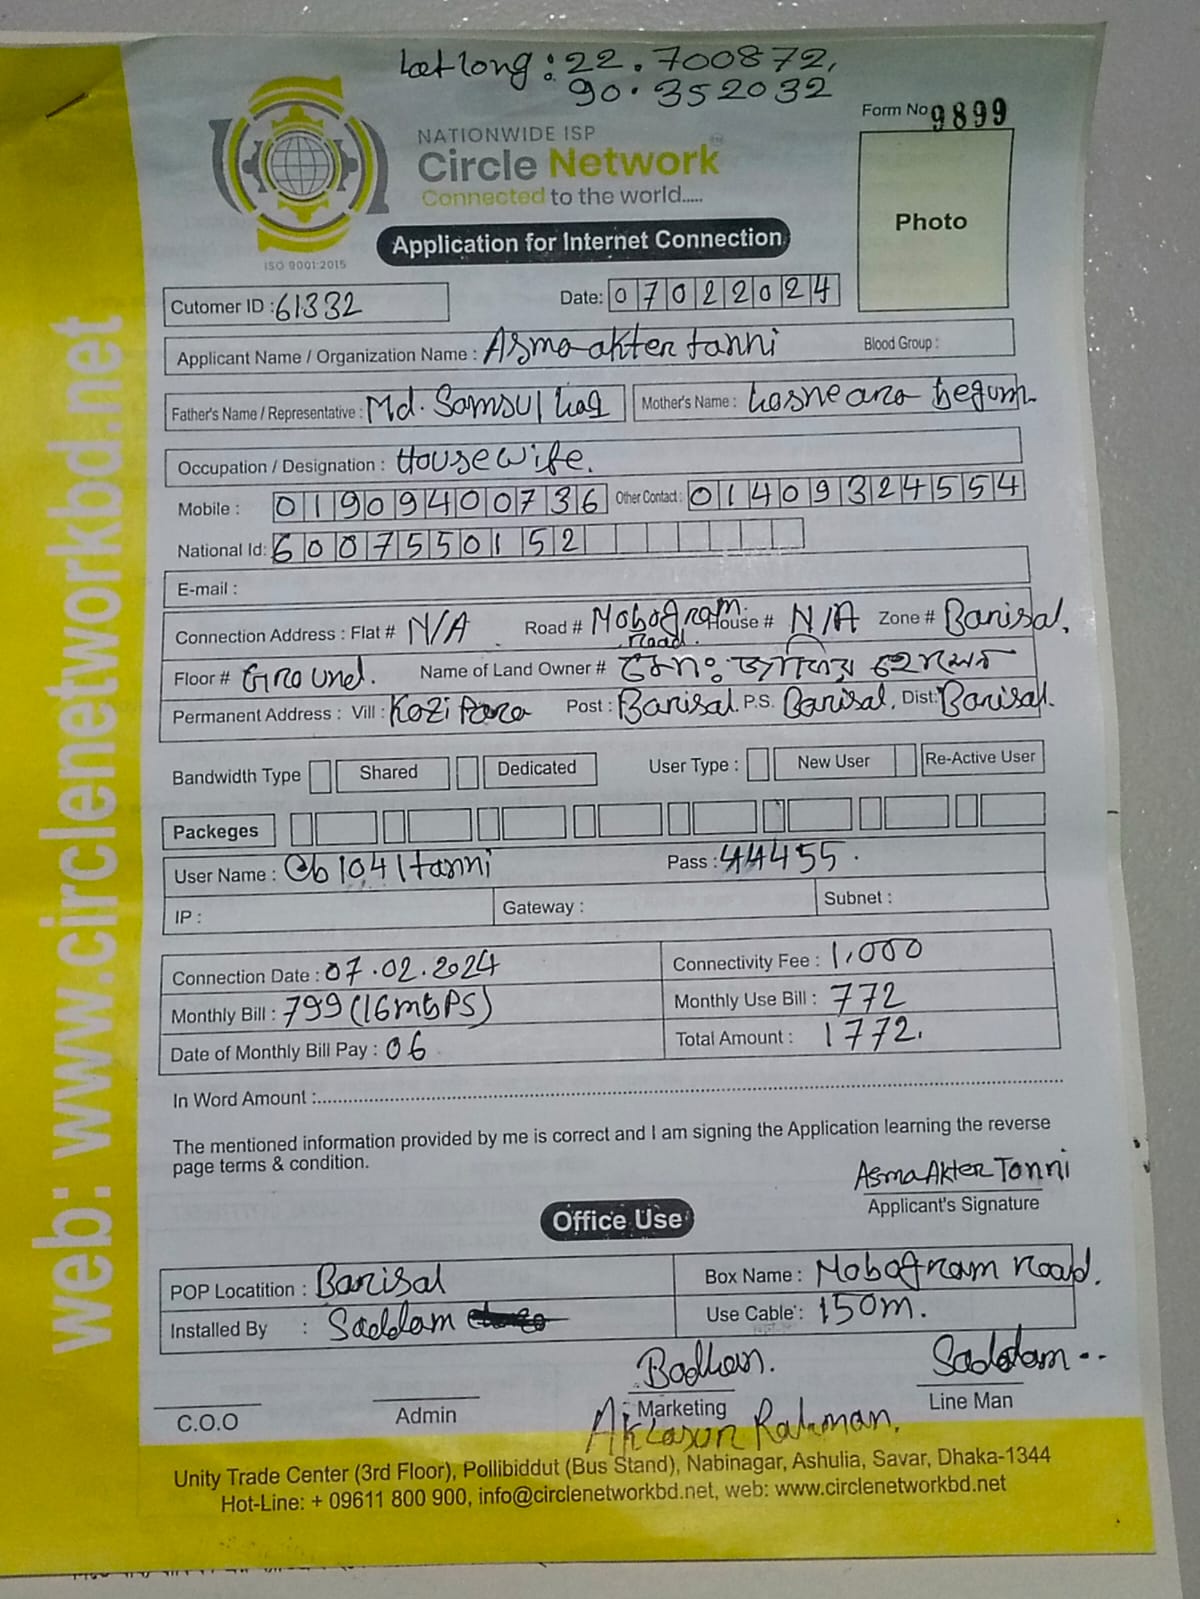 Lat long : 22.700872,
90.352032
Form No 9899
NATIONWIDE ISP
Circle Network
Connected to the world.....
Photo
Application for Internet Connection
ISO 9001:2015
Cutomer ID : 61332
Date: 07022024
Applicant Name / Organization Name : Asma akter tanni Blood Group :
Father's Name / Representative : Md. Samsul haq Mother's Name : hosneara begum
Occupation / Designation : Housewife.
Mobile : 01909400736 Other Contact : 01409324554
National Id: 6007550152
E-mail :
Connection Address : Flat # N/A Road # Mobogram road. House # N/A Zone # Barisal,
Floor # Ground. Name of Land Owner #
Permanent Address : Vill : Kazi Para Post : Barisal. P.S. Barisal, Dist: Barisal.
Bandwidth Type Shared Dedicated User Type : New User Re-Active User
Packeges
User Name : Cb1041tanni Pass : 44455.
IP : Gateway : Subnet :
Connection Date : 07.02.2024 Connectivity Fee : 1,000
Monthly Bill : 799 (16mbPS) Monthly Use Bill : 772
Date of Monthly Bill Pay : 06 Total Amount : 1772.
In Word Amount :
The mentioned information provided by me is correct and I am signing the Application learning the reverse
page terms & condition.
Asma Akter Tanni
Applicant's Signature
Office Use
POP Locatition : Barisal Box Name : Mobogram road.
Installed By : Saddam Use Cable : 150m.
Badhon. Saddam..
C.O.O Admin Marketing Line Man
Rahman.
Unity Trade Center (3rd Floor), Pollibiddut (Bus Stand), Nabinagar, Ashulia, Savar, Dhaka-1344
Hot-Line: + 09611 800 900, info@circlenetworkbd.net, web: www.circlenetworkbd.net
web: www.circlenetworkbd.net